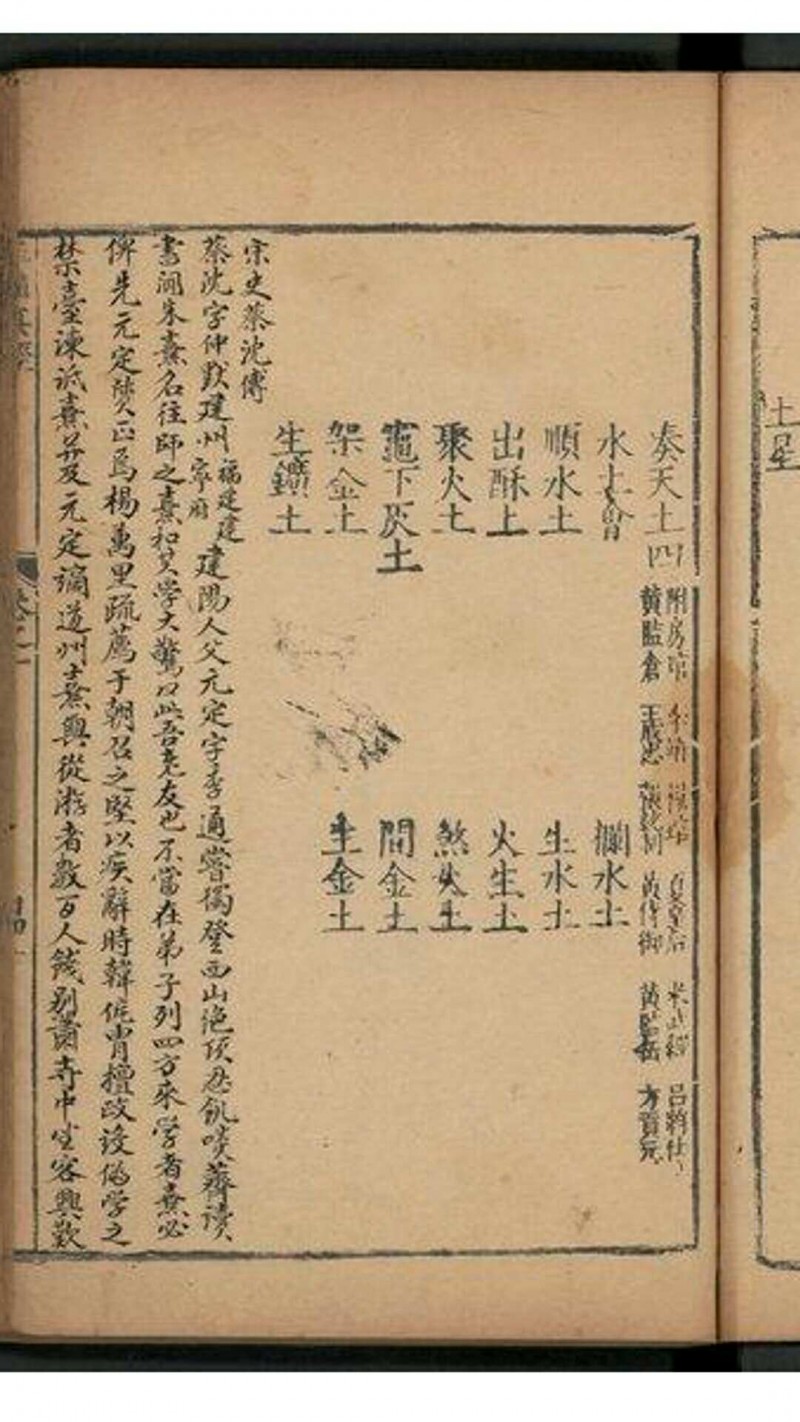 土星
奏天土四
附房
黄監倉 王 黄侍御 黄監岳 方賀死
水土曾
攔水土
順水土
生水土
出酥土
火生土
聚火土
煞火土
竈下灰土
間金土
架金土
生金土
生鑛土
宗史蔡沈傳
蔡沈字仲默建州福建建寧府建陽人父元定字季通嘗獨登西山絶頂忍飢啖薺讀
書聞朱熹名往師之熹扣其學大驚曰此吾老友也不當在弟子列四方來學者熹必
俾先元定質正焉楊萬里疏薦于朝召之堅以疾辭時韓侂胄擅政設偽學之
禁臺諫詆熹并及元定謫道州熹與從游者數百人餞别蕭寺中坐客興歎
卷之一